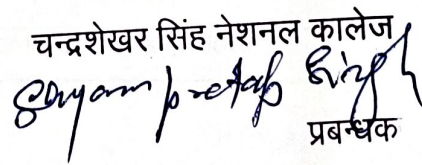 चन्द्रशेखर सिंह नेशनल कालेज
Shyam pratap Singh
प्रबन्धक